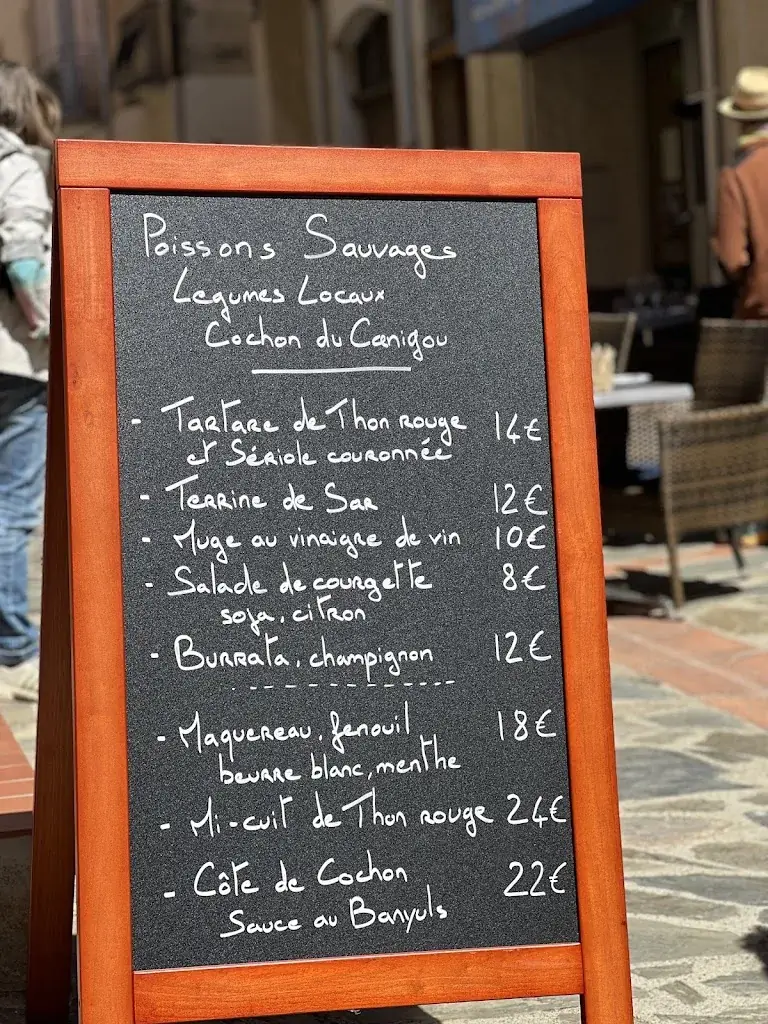 Poissons Sauvages
Légumes Locaux
Cochon du Canigou
- Tartare de Thon rouge 14€
et Sériole couronnée
- Terrine de Sar 12€
- Muge au vinaigre de vin 10€
- Salade de courgette 8€
soja, citron
- Burrata, champignon 12€
- Maquereau, fenouil 18€
beurre blanc, menthe
- Mi-cuit de Thon rouge 24€
- Côte de Cochon 22€
Sauce au Banyuls